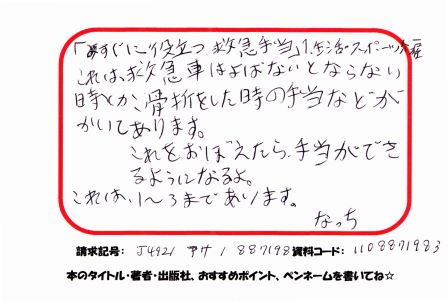 「今すぐに役立つ救急手当」1.生活・スポーツ編
これは、救急車はよばないとならない
時とか、骨折をした時の手当などが
かいてあります。
これをおぼえたら、手当ができ
るようになるよ。
これは、1〜3まであります。
なっち
請求記号： J4921 アサ 1 887198 資料コード： 1108871983
本のタイトル・著者・出版社、おすすめポイント、ペンネームを書いてね☆